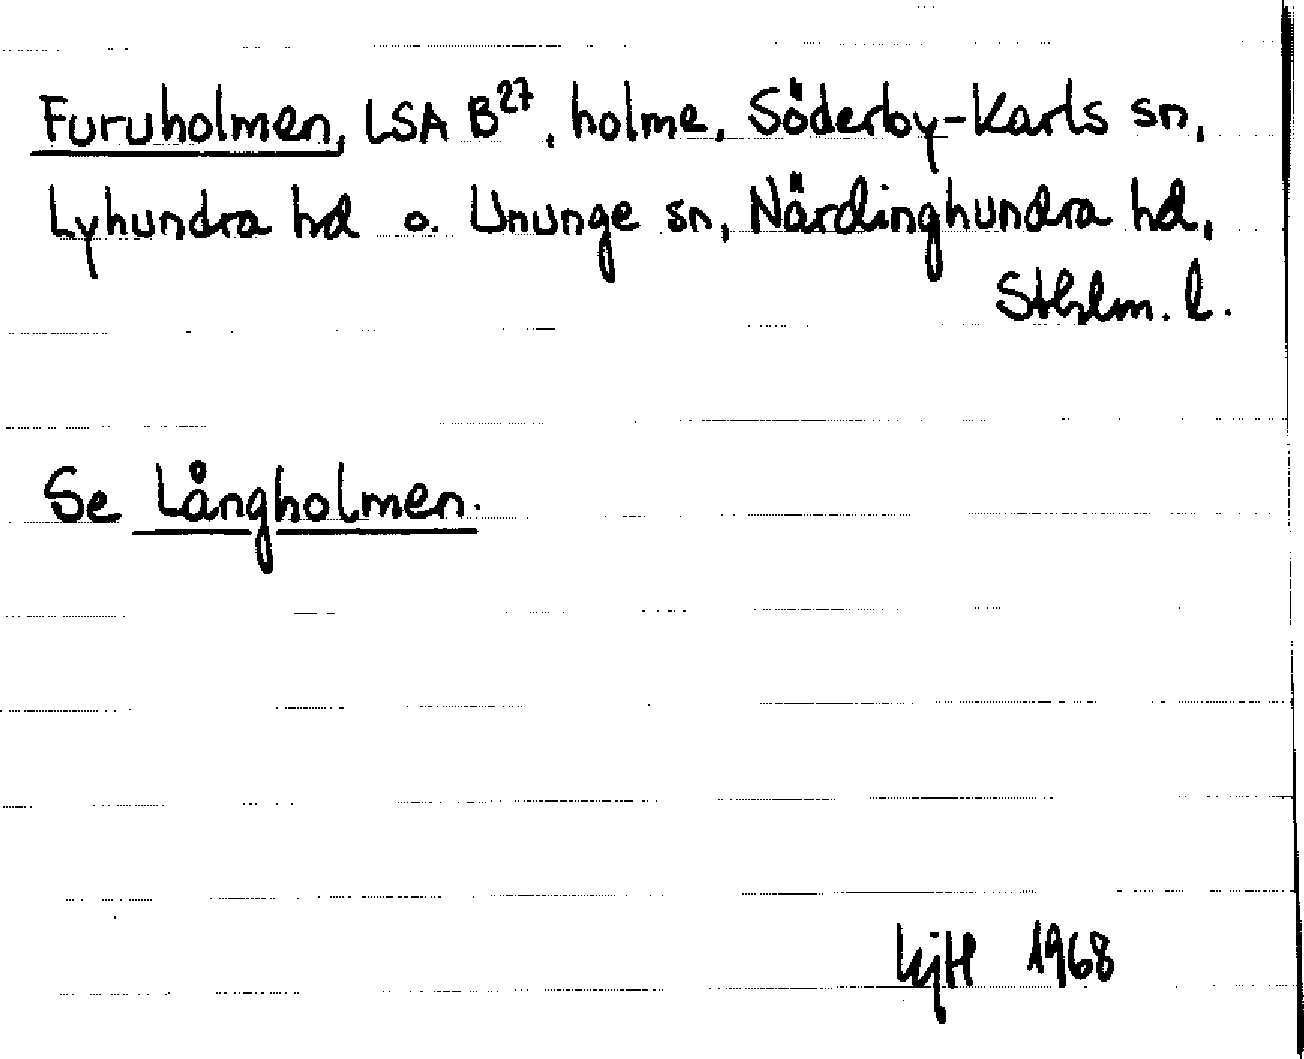 Furuholmen, LSA B27, holme, Söderby-Karls sn,
Lyhundra hd o. Ununge sn, Närdinghundra hd,
Sthlm. l.
Se Långholmen.
KjH 1968